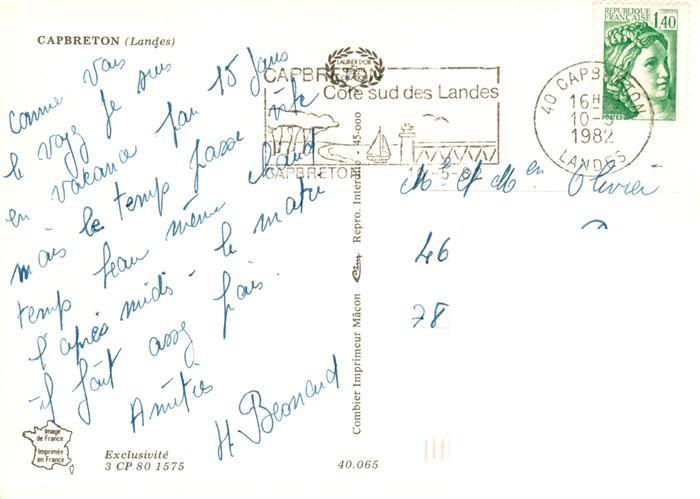 CAPBRETON (Landes)
comme vous
le voyez je suis
en vacance pour 15 jours
mais le temps passe vite
temps beau même chaud
l'après midi - le matin
il fait assez frais.
Amitiés
H. Besnard
Image
de France
Imprimée
en France
Exclusivité
3 CP 80 1575
40.065
Combier Imprimeur Mâcon Cim Repro. Interdite - 45-000
CAPBRETON
LAURIER D'OR
Côte sud des Landes
CAPBRETON
40 CAPBRETON
16H
10-5
1982
LANDES
REPUBLIQUE
FRANÇAISE
1,40
POSTES
M. et Men Olivier
46
78